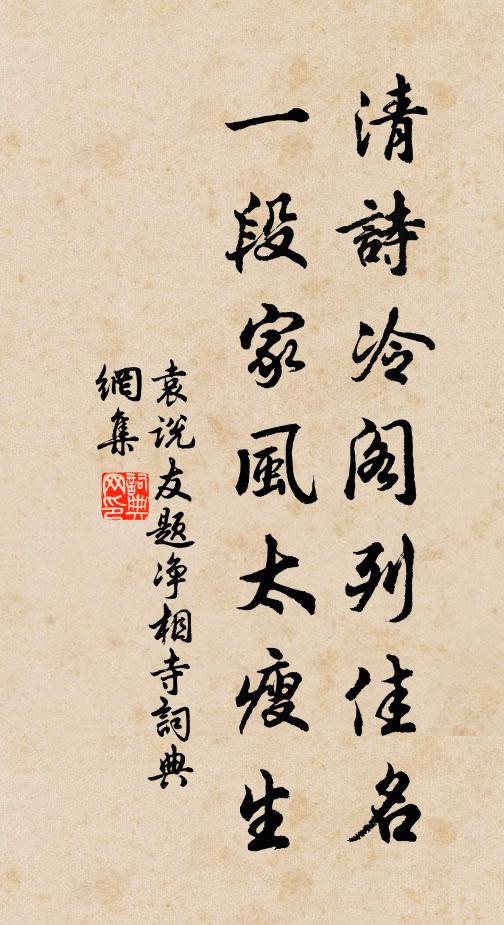 清詩冷阁列佳名
一段家風太瘦生
袁说友题净相寺詞典
網集
詞典
网印